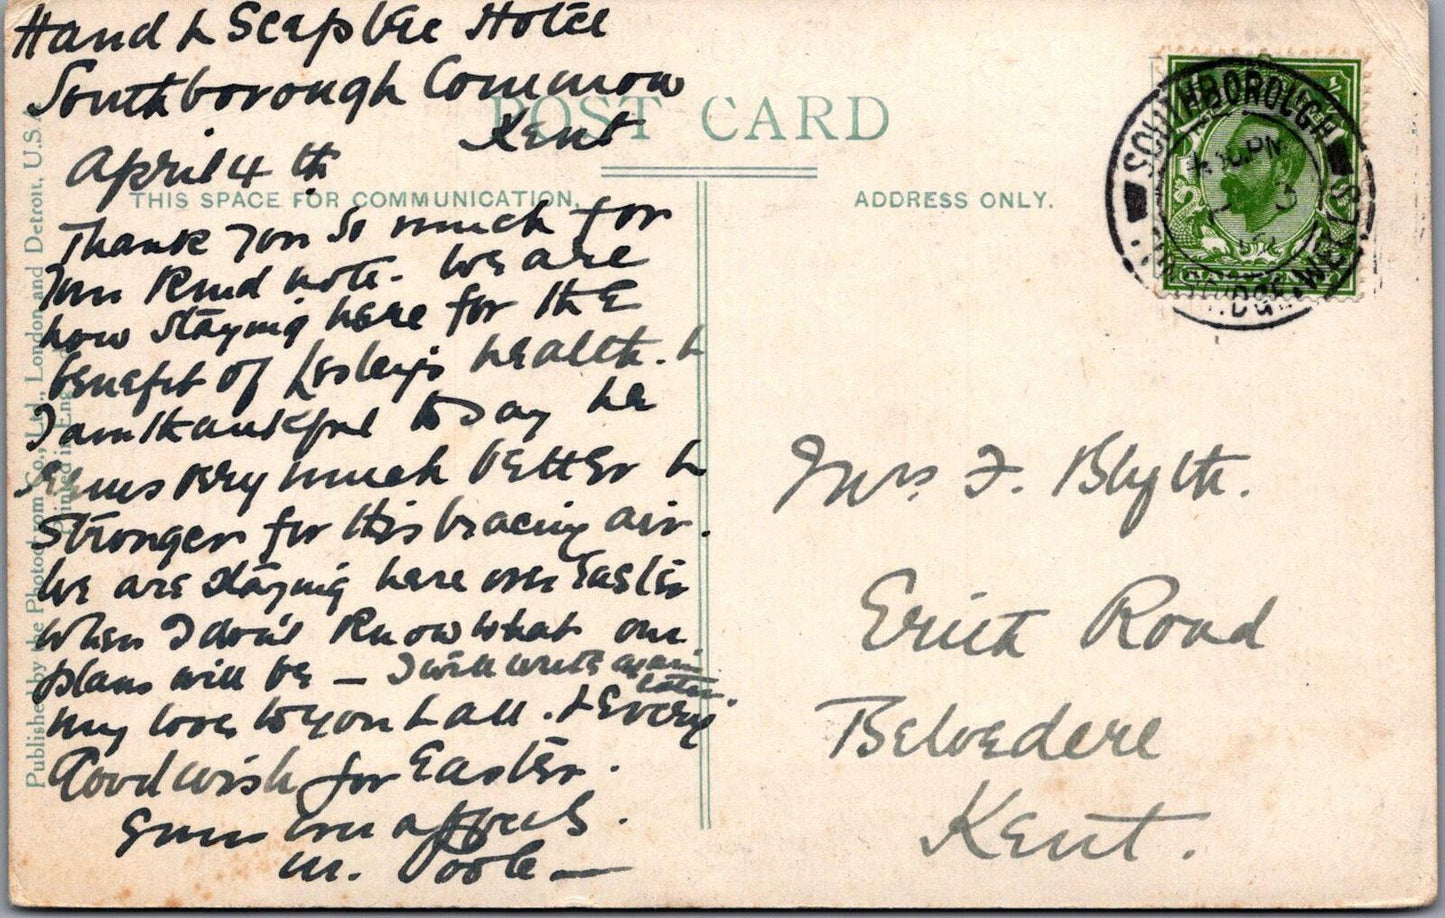 Hand & Sceptre Hotel
Southborough Common
Kent
April 4th
POST CARD
THIS SPACE FOR COMMUNICATION.
ADDRESS ONLY.
Thank you so much for
your kind note. We are
now staying here for the
benefit of Lesley's health. &
I am thankful to say he
seems very much better &
stronger for this bracing air.
We are staying here over Easter
when I don't know what our
plans will be — I will write again
later.
my love to you & all. & Every
Good wish for Easter.
Yours
M. Poole —
Mrs. F. Blyth.
Erith Road
Belvedere
Kent.
SOUTHBOROUGH
Published by the Photochrom Co., Ltd., London and Detroit, U.S.A.
Printed in